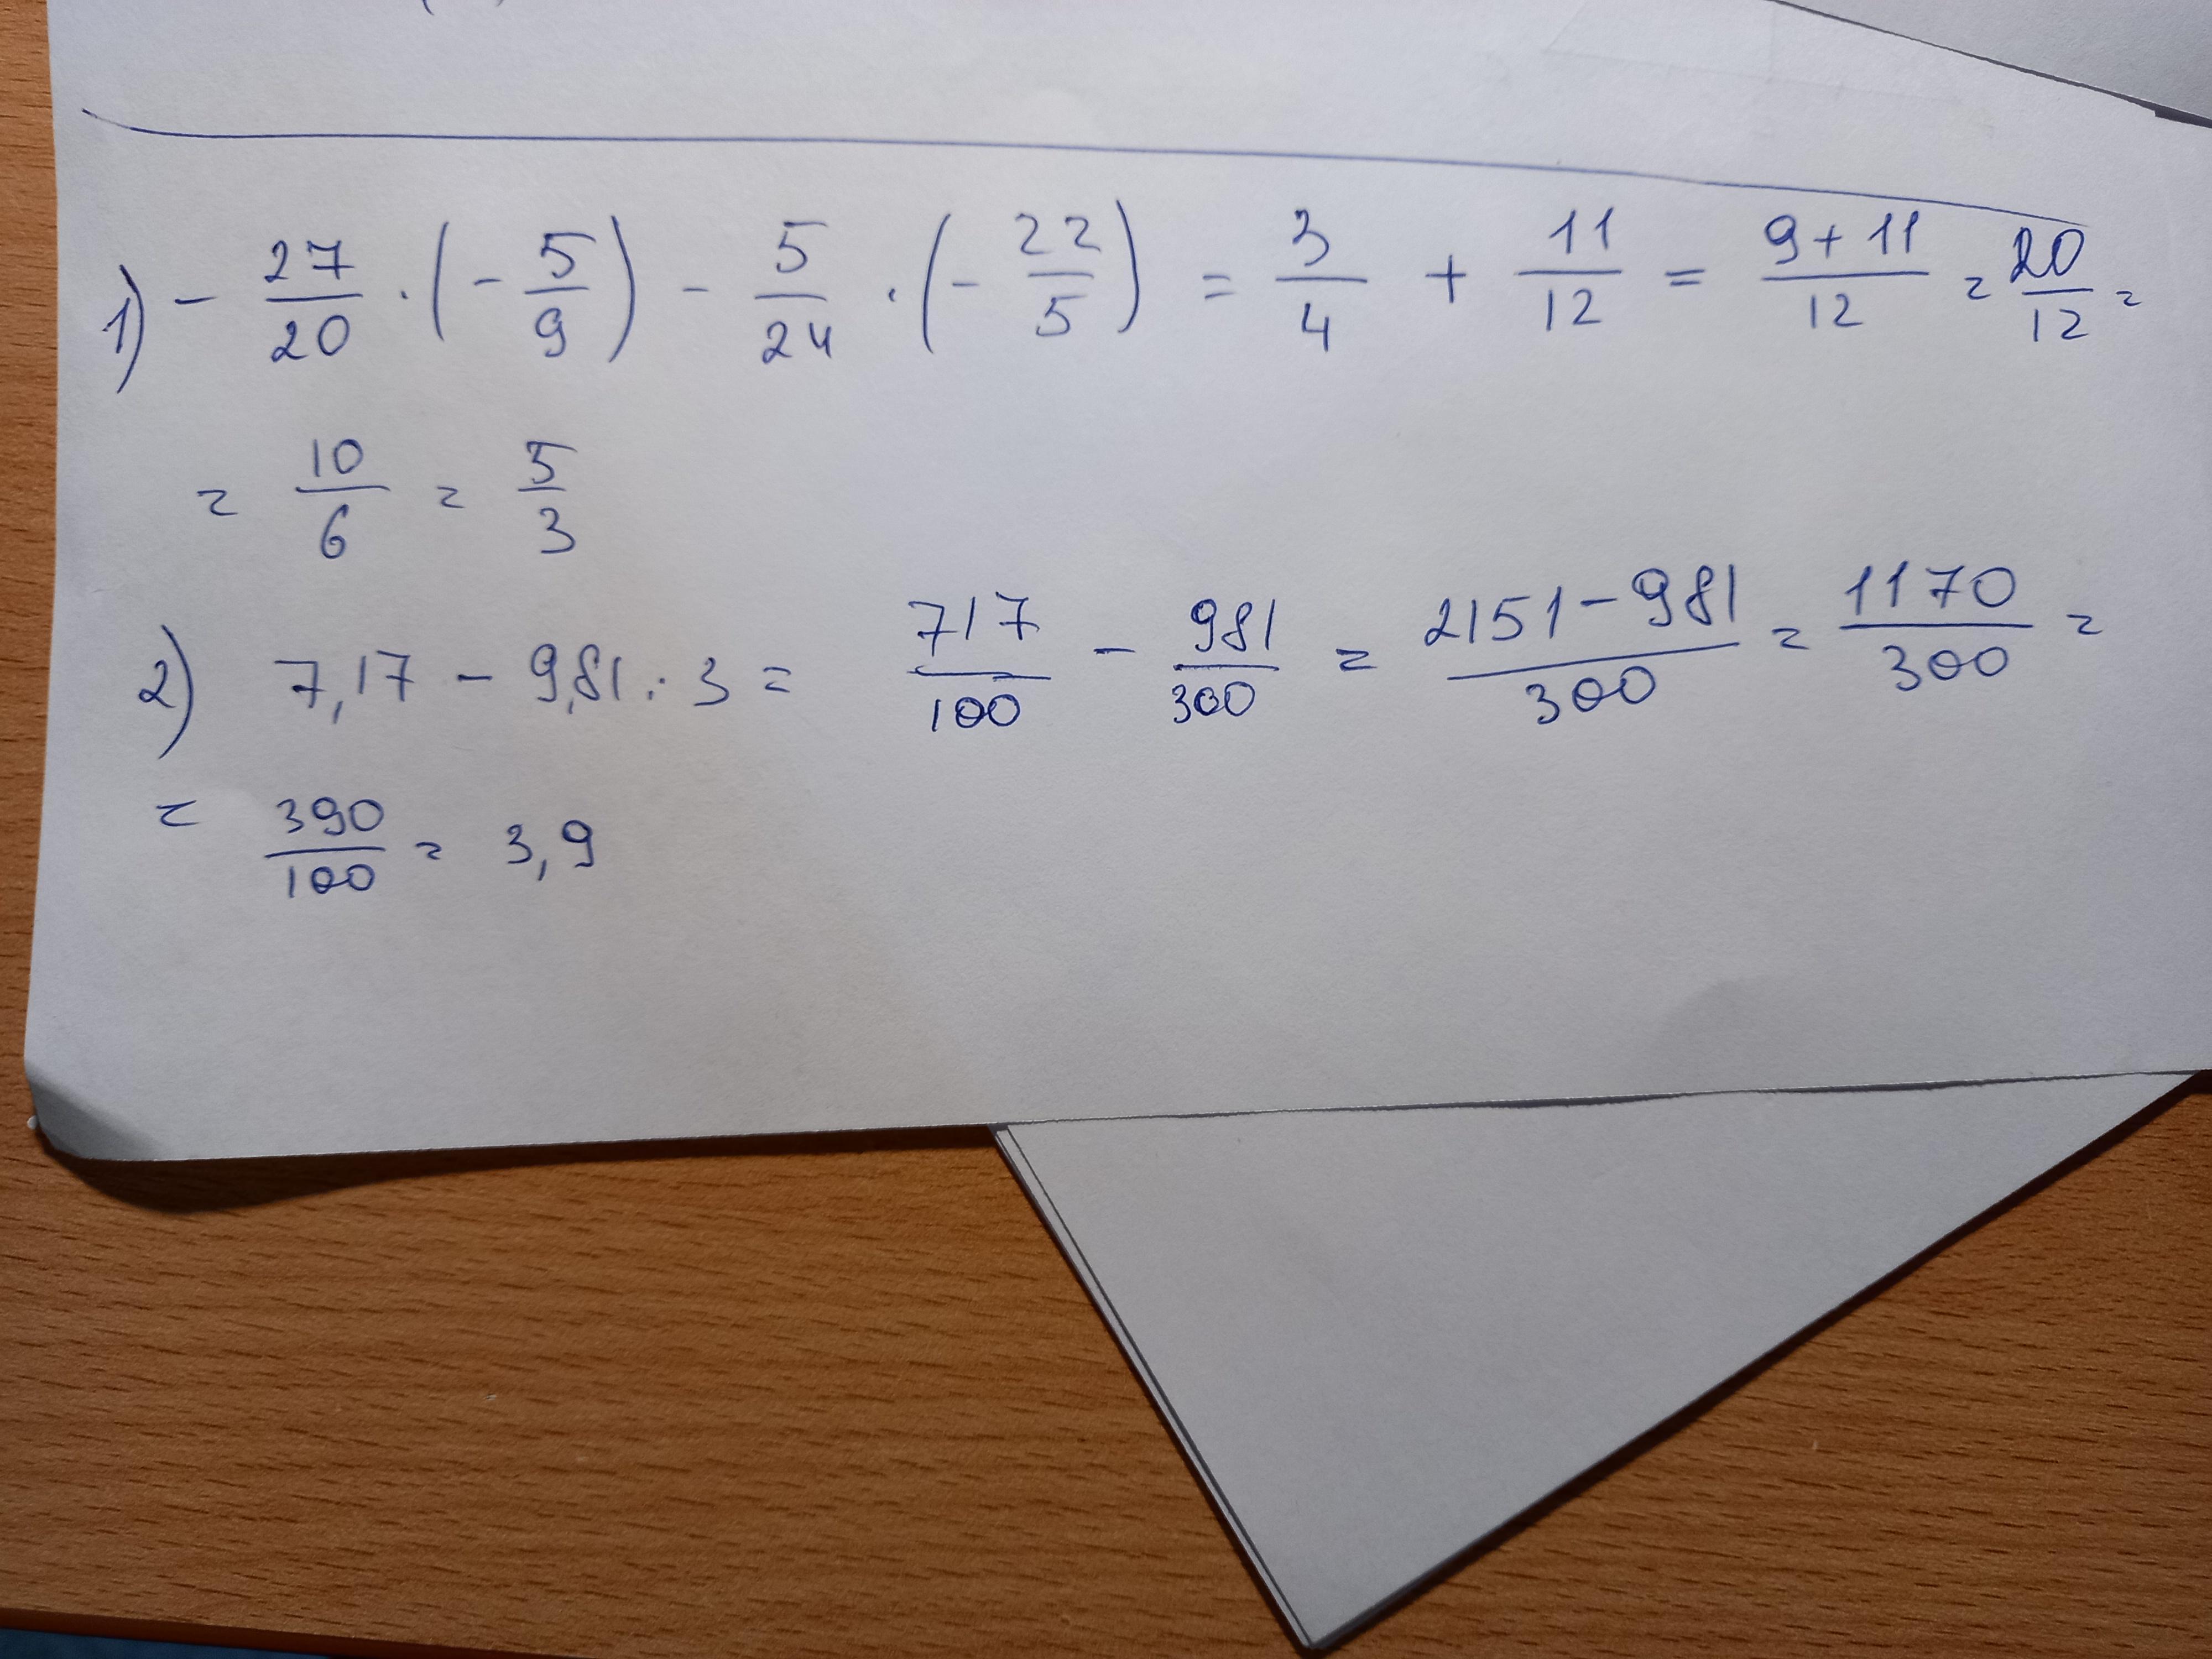 1) - 27/20 · (- 5/9) - 5/24 · (- 22/5) = 3/4 + 11/12 = 9+11/12 = 20/12 =
= 10/6 = 5/3
2) 7,17 - 9,81 : 3 = 717/100 - 981/300 = 2151-981/300 = 1170/300 =
= 390/100 = 3,9